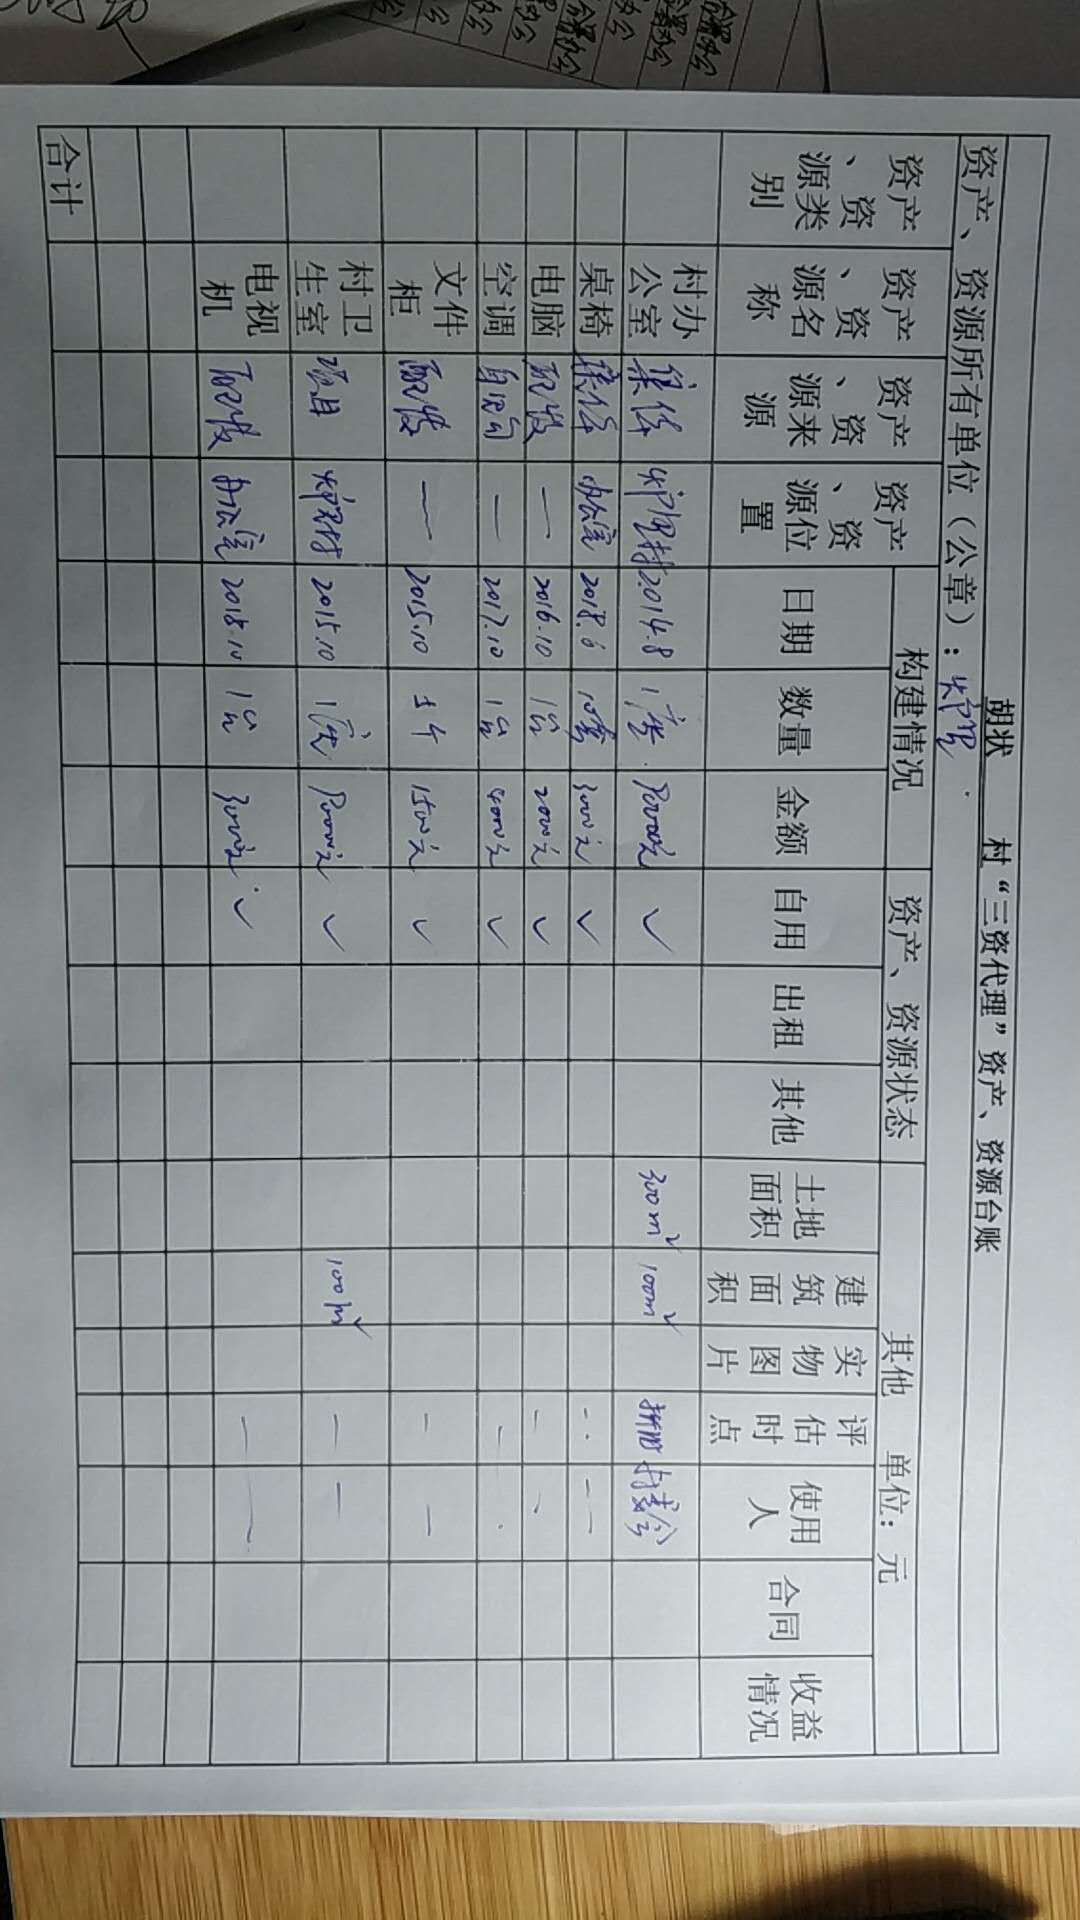 胡状 村“三资代理”资产、资源台账
资产、资源所有单位(公章): 单位:元
资产、资源类别 资产、资源名称 资产、资源来源 资产、资源位置 构建情况 资产、资源状态 其他
日期 数量 金额 自用 出租 其他 土地面积 建筑面积 实物图片 评估时点 使用人 合同 收益情况
村办公室 集体 2014.8 1座 80000元 ✓ 300m² 100m² 村委会
桌椅 集体 办公室 2018.6 10套 3000元 ✓
电脑 配发 — 2016.10 1台 2000元 ✓
空调 自购 — 2017.10 1台 4000元 ✓
文件柜 配发 — 2015.10 1500元 ✓
村卫生室 项目 2015.10 1座 80000元 ✓ 100m² — —
电视机 配发 办公室 2018.10 1台 3000元 ✓ — —
合计